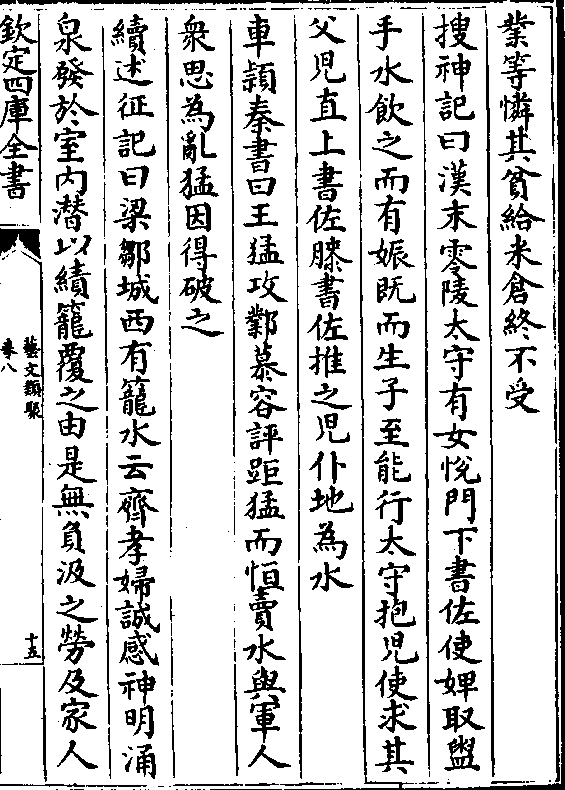 業等憐其貧給米倉終不受
搜神記曰漢末零陵太守有女悅門下書佐使婢取盥
手水飲之而有娠既而生子至能行太守抱兒使求其
父兒直上書佐膝書佐推之兒仆地為水
車頴秦書曰王猛攻鄴慕容評距猛而恒賣水與軍人
衆思為亂猛因得破之
續述征記曰梁鄒城西有籠水云齊孝婦誠感神明涌
泉發於室内潜以績籠覆之由是無負汲之勞及家人
欽定四庫全書
藝文類聚
卷八
十五